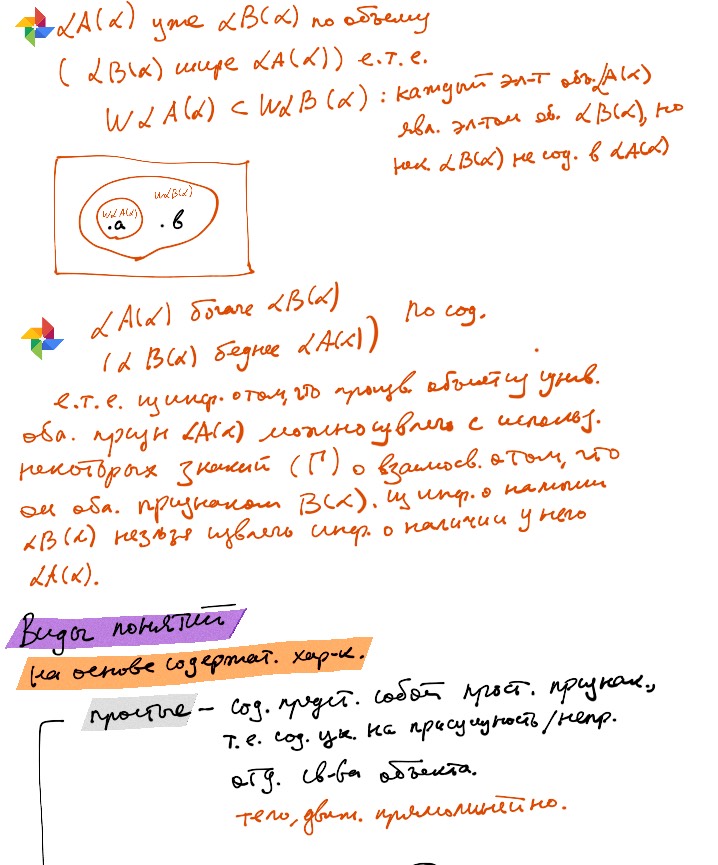 αA(α) уже αB(α) по объему
(αB(α) шире αA(α)) е.т.е.
WαA(α) ⊂ WαB(α) : каждый эл-т об. αA(α)
явл. эл-том об. αB(α), но
нек. αB(α) не сод. в αA(α)
WαA(α) WαB(α)
.a . b
αA(α) богаче αB(α) по сод.
(αB(α) беднее αA(α))
е.т.е. из инф. о том, что произв. объект из унив.
оба. призн αA(α) можно извлечь с использ.
некоторых знаний (Γ) о взаимосв. о том, что
он оба. признаком B(α). из инф. о наличии
αB(α) нельзя извлечь инф. о наличии у него
αA(α).
Виды понятий
на основе содержат. хар-к.
простые – сод. предст. собой прост. признак.,
т.е. сод. ук. на присущность/непр.
отд. св-ва объекта.
тело, движ. прямолинейно.